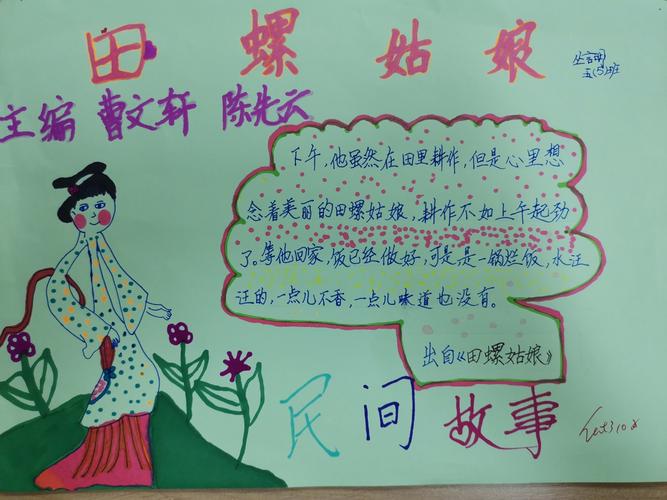 田螺姑娘
五(5)班
主编 曹文轩 陈先云
下午，他虽然在田里耕作，但是心里想
念着美丽的田螺姑娘，耕作不如上午起劲
了。等他回家，饭已经做好，可是是一锅烂饭，水汪
汪的，一点儿不香，一点儿味道也没有。
出自《田螺姑娘》
民间故事